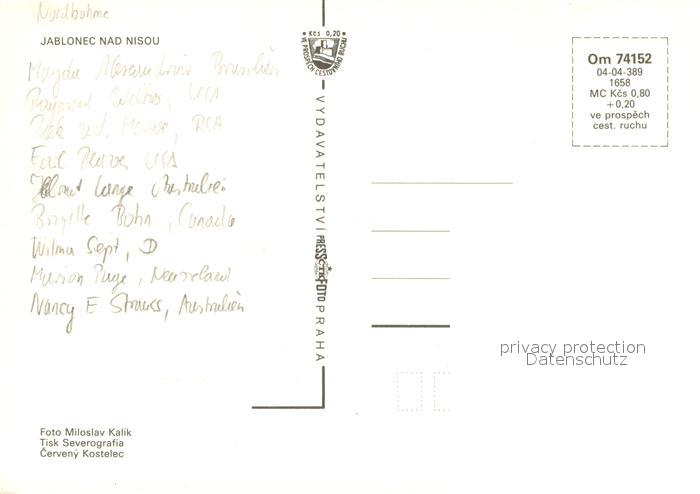 Nordböhme
JABLONEC NAD NISOU
Magda Brasilien
Raymond USA
RSA
Emil USA
Helmut Lange Australien
Brigitte Bohn, Canada
Wilma Sept, D
Marion Page, Neuseeland
Nancy E Strauss, Australien
Foto Miloslav Kalík
Tisk Severografia
Červený Kostelec
Kčs 0,20
VE PROSPĚCH CESTOVNÍHO RUCHU
VYDAVATELSTVÍ PRESSFOTO PRAHA
ČTK
Om 74152
04-04-389
1658
MC Kčs 0,80
+0,20
ve prospěch
cest. ruchu
privacy protection
Datenschutz